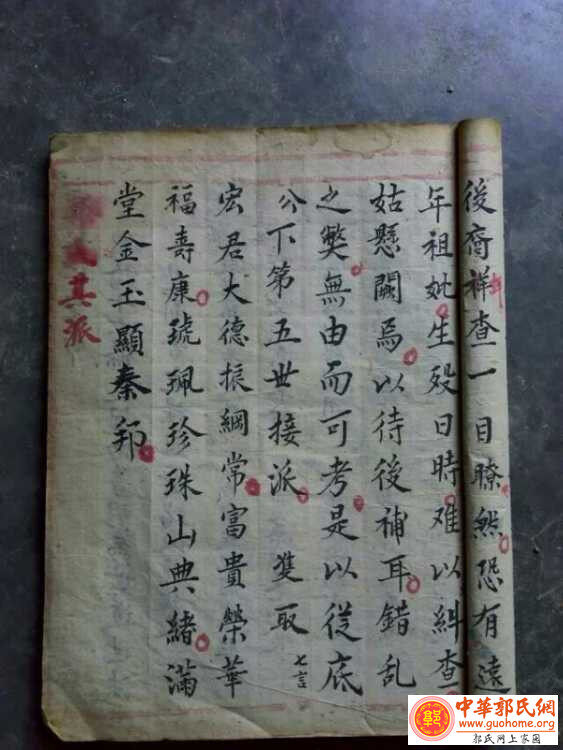 後裔祥查一目瞭然恐有遠
年祖妣生殁日時难以糾查
姑懸闕焉以待後補耳錯乱
之獘無由而可考是以從底
公下第五世接派 隻取七言
宏君大德振綱常富貴榮華
福壽康琥珮珍珠山典緒滿
堂金玉顯秦邦
其派
中華郭氏網
www.guohome.org
郭氏网上家园